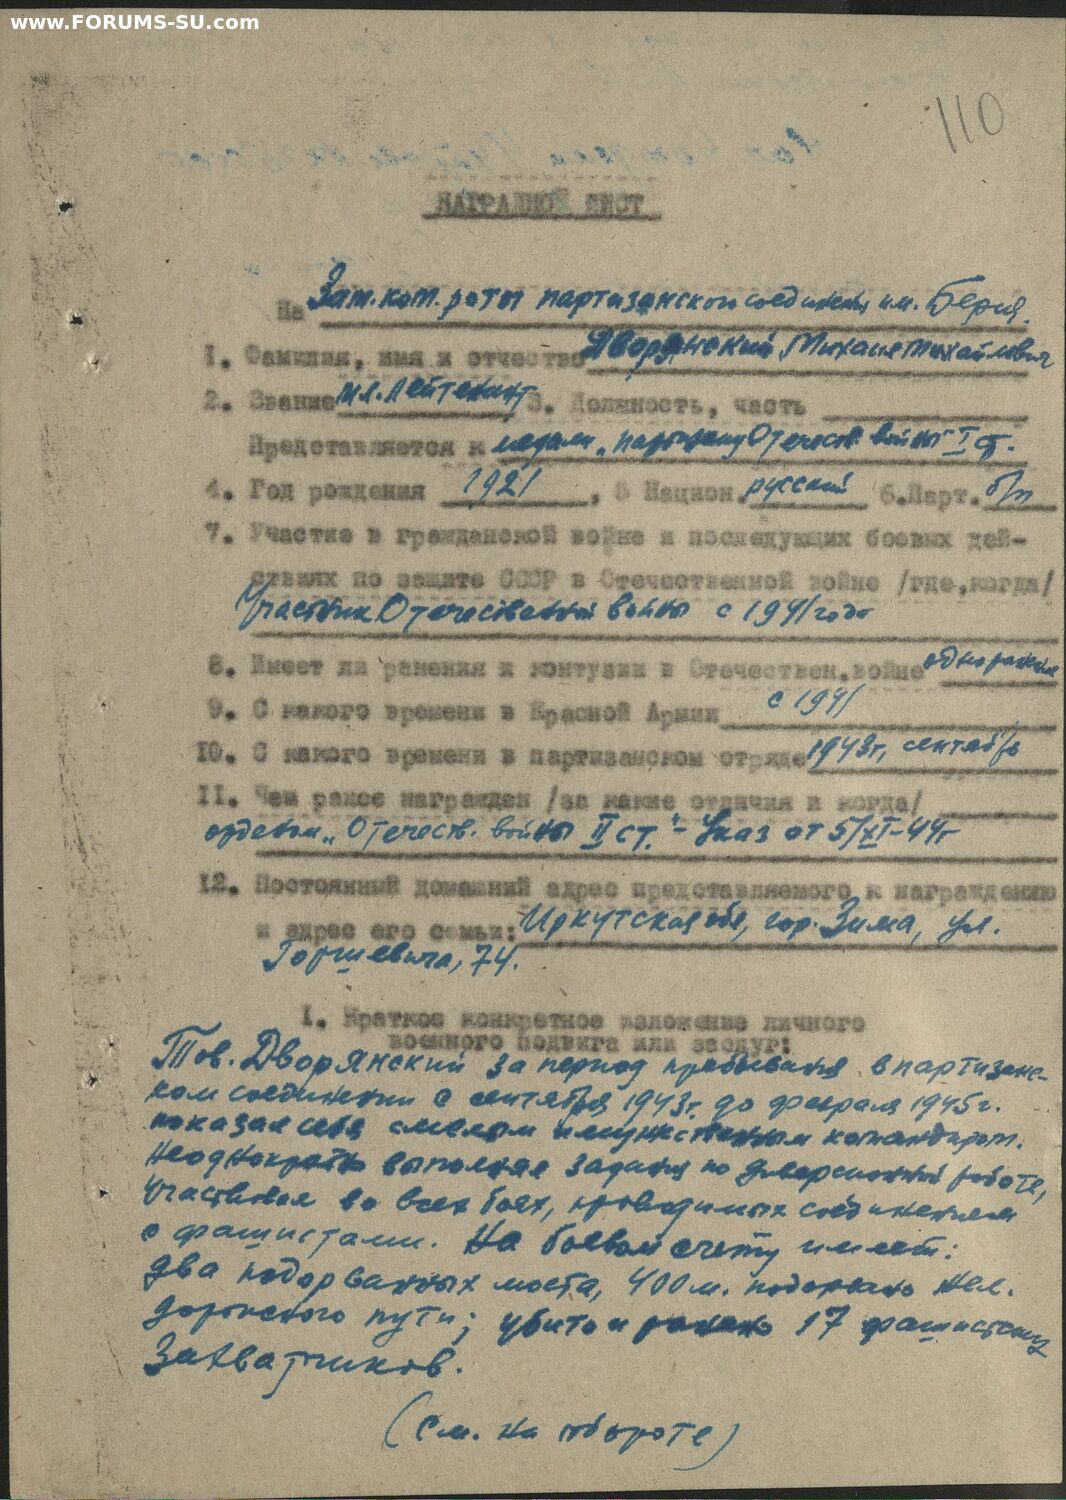 www.FORUMS-SU.com
110
НАГРАДНОЙ ЛИСТ
На Зам. ком. роты партизанского соединения им. Берия.
1. Фамилия, имя и отчество Дворянский Михаил Михайлович
2. Звание мл. лейтенант 3. Должность, часть
Представляется к медали "партизану Отечеств. войны" I ст.
4. Год рождения 1921, 5 Национ. русский 6. Парт. б/п
7. Участие в гражданской войне и последующих боевых дей-
ствиях по защите СССР в Отечественной войне /где, когда/
Участник Отечественной войны с 1941 года
8. Имеет ли ранения и контузии в Отечествен. войне одно ранение
9. С какого времени в Красной Армии с 1941
10. С какого времени в партизанском отряде 1943г, сентябрь
11. Чем ранее награжден /за какие отличия и когда/
орденом "Отечеств. войны II ст." - Указ от 5/XI-44г
12. Постоянный домашний адрес представляемого к награждению
и адрес его семьи: Иркутская обл, гор. Зима, ул.
74.
1. Краткое конкретное изложение личного
военного подвига или заслуг:
Тов. Дворянский за период пребывания в партизанс-
ком соединении с сентября 1943г. до февраля 1945г.
показал себя смелым и мужественным командиром.
Неоднократно выполнял задания по диверсионной работе,
участвовал во всех боях, проводимых соединением
с фашистами. На боевом счету имеет:
два подорванных моста, 400 м. подорвано жел.
дорожного пути; убито и ранено 17 фашистских
захватчиков.
(См. на обороте)